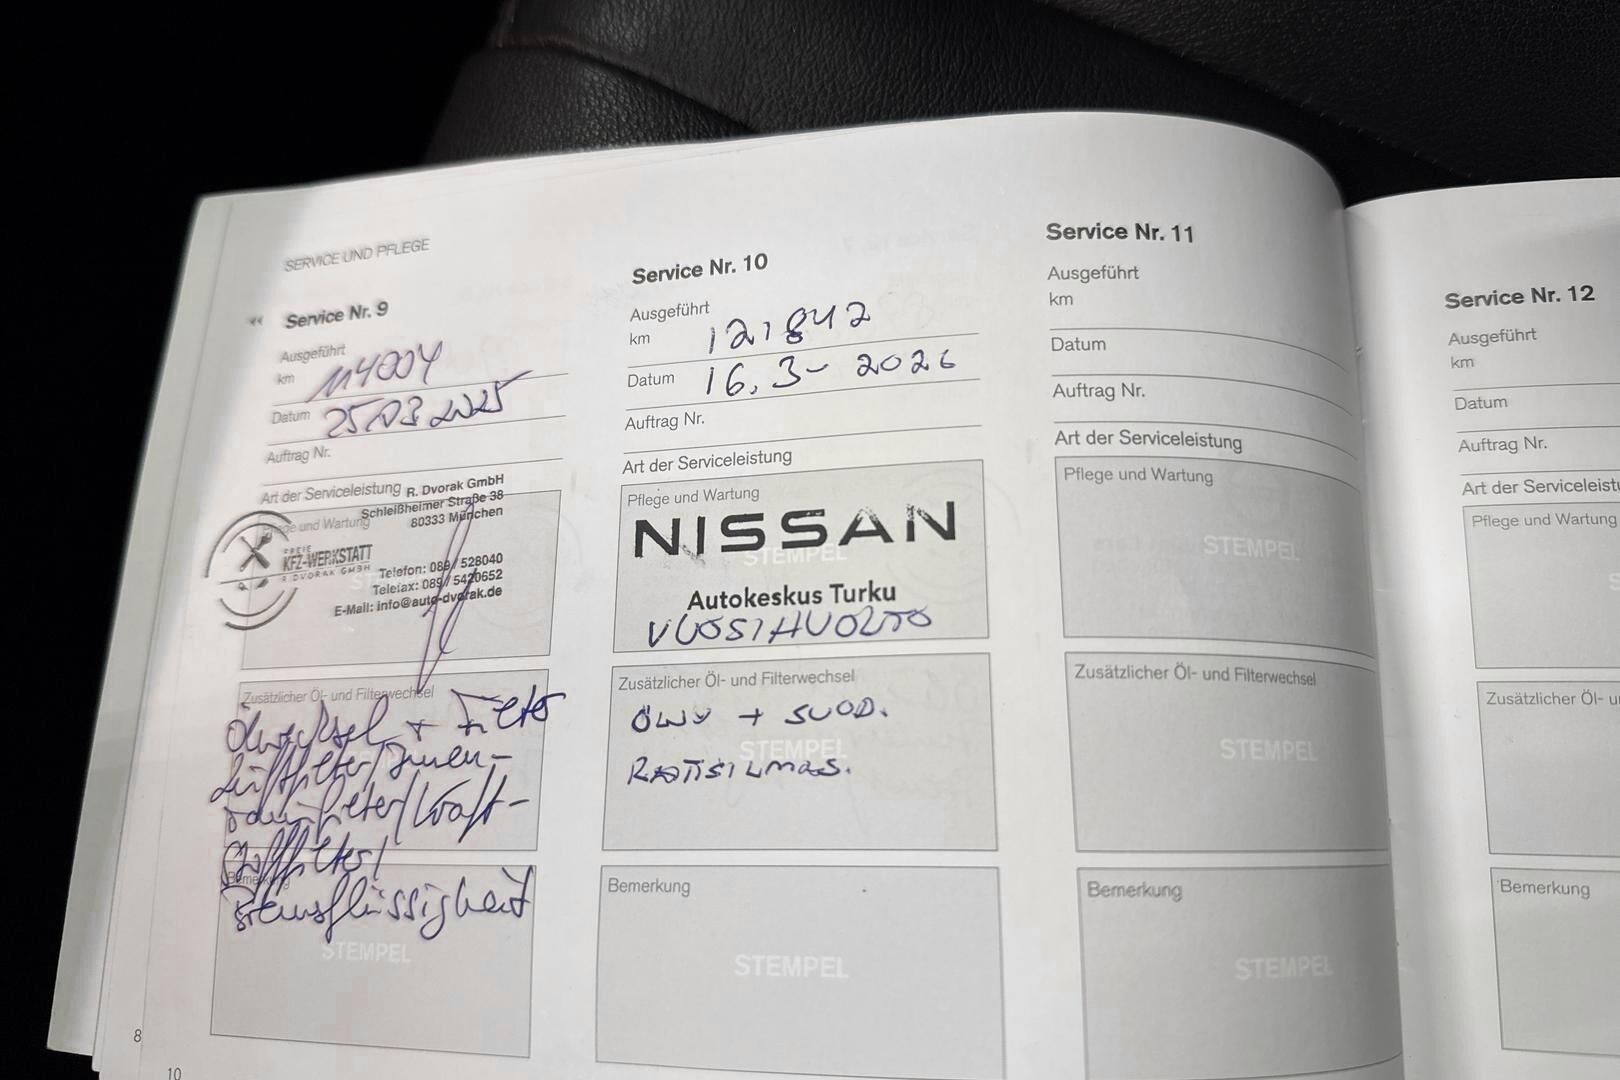 SERVICE UND PFLEGE
Service Nr. 9
Ausgeführt
km 114004
Datum 25.03.2025
Auftrag Nr.
Art der Serviceleistung
Pflege und Wartung
R. Dvorak GmbH
Schleißheimer Straße 38
80333 München
FREIE
KFZ-WERKSTATT
R. DVORAK GMBH
Telefon: 089 / 528040
Telefax: 089 / 5420652
E-Mail: info@auto-dvorak.de
Zusätzlicher Öl- und Filterwechsel
Ölwechsel + Filter
Luftfilter/Innen-
raumfilter/Kraft-
stofffilter/
Bemerkung
Bremsflüssigkeit
STEMPEL
Service Nr. 10
Ausgeführt
km 121842
Datum 16.3- 2026
Auftrag Nr.
Art der Serviceleistung
Pflege und Wartung
NISSAN
STEMPEL
Autokeskus Turku
VUOSIHUOLTO
Zusätzlicher Öl- und Filterwechsel
ÖLJY + SUOD.
STEMPEL
RAITISILMAS.
Bemerkung
STEMPEL
Service Nr. 11
Ausgeführt
km
Datum
Auftrag Nr.
Art der Serviceleistung
Pflege und Wartung
STEMPEL
Zusätzlicher Öl- und Filterwechsel
STEMPEL
Bemerkung
STEMPEL
Service Nr. 12
Ausgeführt
km
Datum
Auftrag Nr.
Art der Serviceleist
Pflege und Wartung
Zusätzlicher Öl- u
Bemerkung
8
10